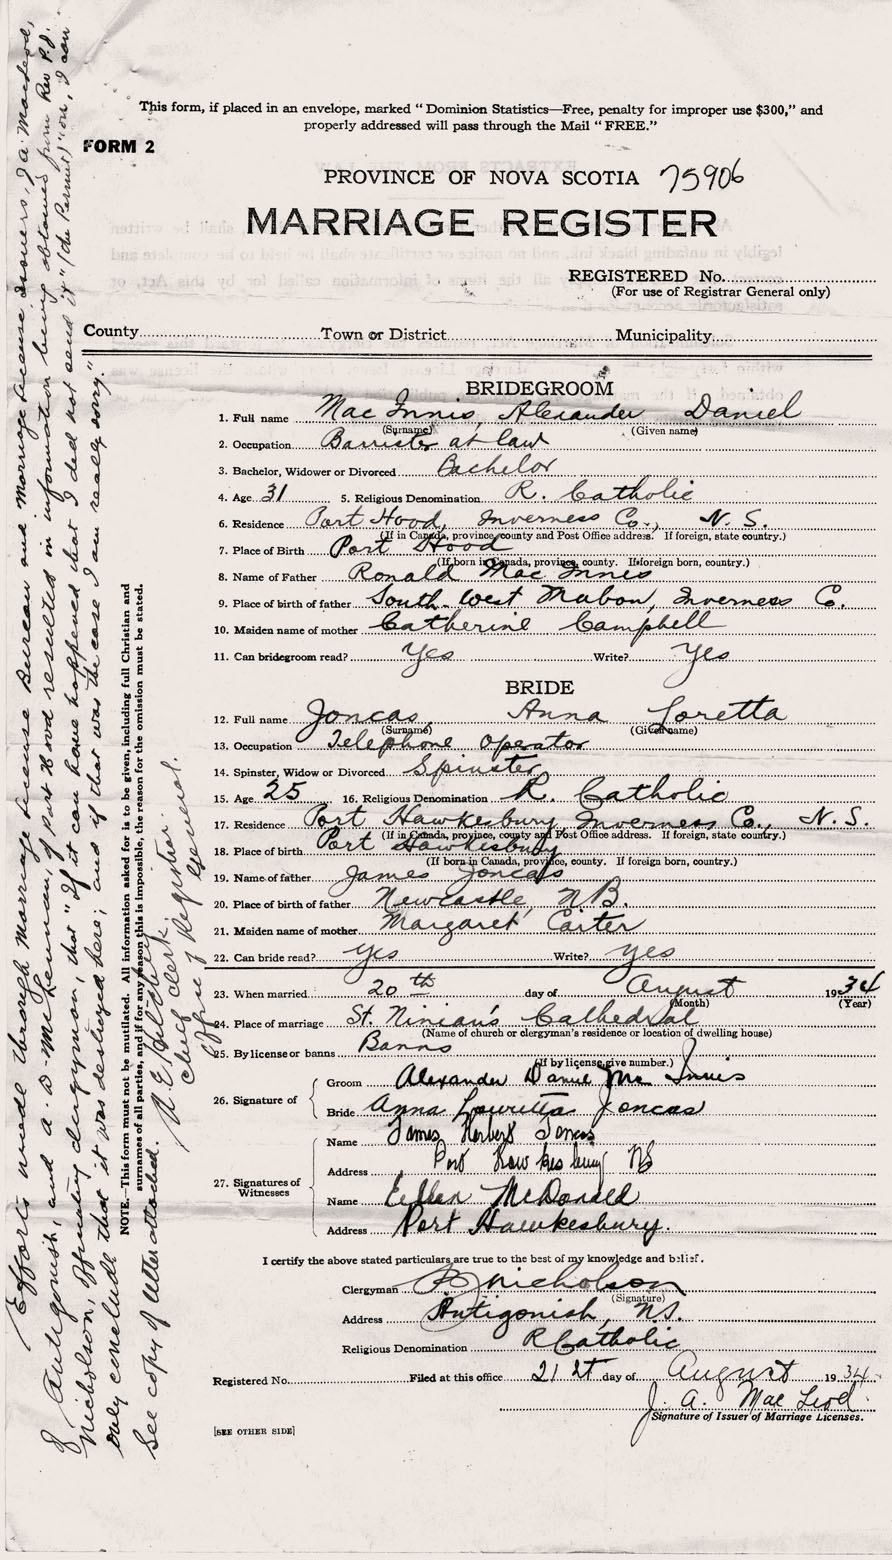 This form, if placed in an envelope, marked "Dominion Statistics—Free, penalty for improper use $300," and
properly addressed will pass through the Mail "FREE."
FORM 2
PROVINCE OF NOVA SCOTIA 75906
MARRIAGE REGISTER
REGISTERED No.
(For use of Registrar General only)
County Town or District Municipality
BRIDEGROOM
1. Full name Mac Innis, Alexander Daniel
(Surname) (Given name)
2. Occupation Barrister at law
3. Bachelor, Widower or Divorced Bachelor
4. Age 31 5. Religious Denomination R. Catholic
6. Residence Port Hood, Inverness Co., N. S.
(If in Canada, province, county and Post Office address. If foreign, state country.)
7. Place of Birth Port Hood
(If born in Canada, province, county. If foreign born, country.)
8. Name of Father Ronald Mac Innis
9. Place of birth of father South-west Mabou, Inverness Co.
10. Maiden name of mother Catherine Campbell
11. Can bridegroom read? Yes Write? Yes
BRIDE
12. Full name Joncas, Anna Loretta
(Surname) (Given name)
13. Occupation Telephone operator
14. Spinster, Widow or Divorced Spinster
15. Age 25 16. Religious Denomination R. Catholic
17. Residence Port Hawkesbury, Inverness Co., N. S.
(If in Canada, province, county and Post Office address. If foreign, state country.)
18. Place of Birth Port Hawkesbury
(If born in Canada, province, county. If foreign born, country.)
19. Name of father James Joncas
20. Place of birth of father Newcastle, N.B.
21. Maiden name of mother Margaret Carter
22. Can bride read? Yes Write? Yes
23. When married 20th day of August 1934
(Month) (Year)
24. Place of marriage St. Ninian's Cathedral
(Name of church or clergyman's residence or location of dwelling house)
25. By license or banns Banns
(If by license, give number.)
26. Signature of Groom Alexander Daniel Mc Innis
Bride Anna Lauretta Joncas
27. Signatures of Witnesses
Name James Herbert Joncas
Address Port Hawkesbury NS
Name Eillen McDonald
Address Port Hawkesbury.
I certify the above stated particulars are true to the best of my knowledge and belief.
Clergyman P J Nicholson
(Signature)
Address Antigonish, N.S.
Religious Denomination R Catholic
Registered No. Filed at this office 21st day of August 1934
J. A. Mac Leod
Signature of Issuer of Marriage Licenses.
[SEE OTHER SIDE]
NOTE.—This form must not be mutilated. All information asked for is to be given, including full Christian and
surnames of all parties, and if for any reason this is impossible, the reason for the omission must be stated.
Efforts made through Marriage License Bureau and Marriage License Issuers, J. A. MacLeod,
of Antigonish, and A. D. McLennan, of Port Hood resulted in information being obtained from Rev P. J.
Nicholson, Officiating clergyman, that "If it can have happened that I did not send it" (the Permit) "on, I can
only conclude that it was destroyed here; and if that was the case I am really sorry."
See copy of letter attached.
Chief Clerk,
Office of Registrar General.